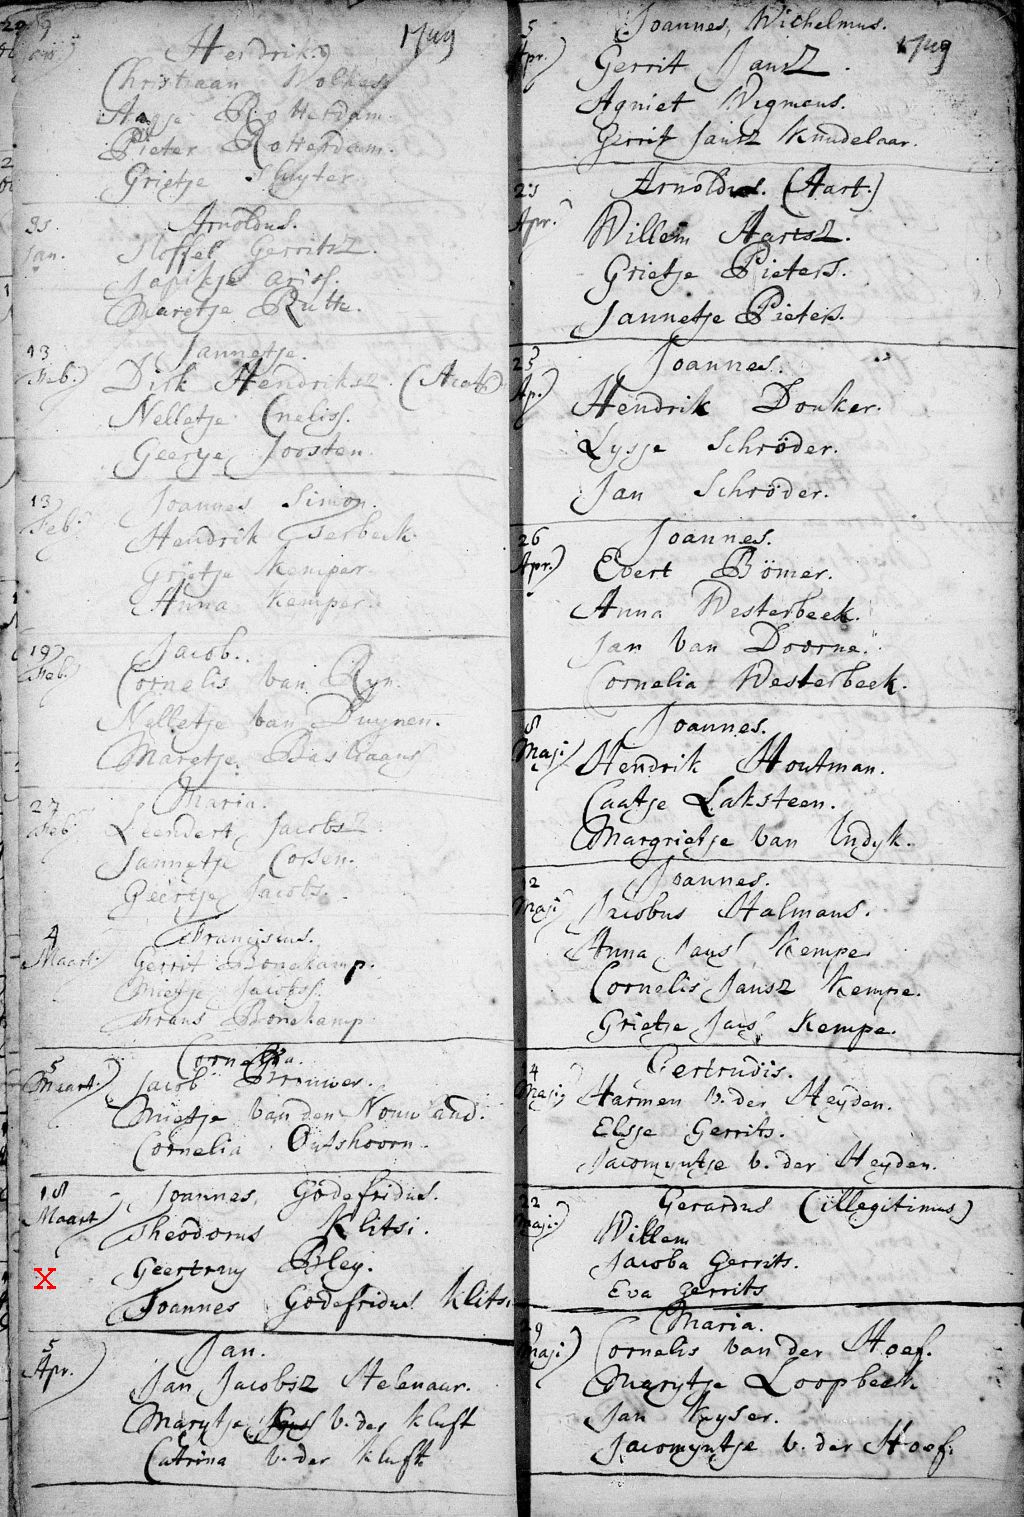 29 Jan.) Hendrik. 1749
Christiaan Wolters
Aagje Rotterdam.
Pieter Rotterdam.
Grietje Sluyter.
31. Jan. Arnoldus.
Stoffel Gerritsz.
Japikje Ariss.
Maretje Rutte.
13 Feb.) Jannetje.
Dirk Hendriksz. (Acat.)
Nelletje Cneliss.
Geertje Joosten.
13 Feb. Joannes Simon.
Hendrik Eserbeek.
Grietje Kemper.
Anna Kemper.
19 Feb.) Jacob.
Cornelis van Ryn.
Nelletje van Duynen.
Maretje Bastiaans
27 Feb. Maria.
Leendert Jacobsz.
Jannetje Corsen.
Geertje Jacobs.
4 Maart. Franciscus.
Gerrit Bonekamp.
Mietje Jacobss.
Frans Bonekamp.
5 Maart.) Cornelia.
Jacob Brouwer.
Mietje van den Nouwland.
Cornelia Outshoorn.
18 Maart) Joannes, Godefridus.
Theodorus Klitsi.
X Geertruy Bley.
Joannes Godefridus Klitsi
5 Apr.) Jan.
Jan Jacobsz Helenaar.
Marytje v. der Kluft
Catrina v. der Kluft
5 Apr.) Joannes, Wichelmus. 1749
Gerrit Jansz.
Agniet Wigmans.
Gerrit Jansz Knudelaar.
21 Apr. Arnoldus. (Aart.)
Willem Aartsz.
Grietje Pieters.
Jannetje Pieters.
23 Ap.) Joannes.
Hendrik Donker.
Lysje Schröder.
Jan Schröder.
26 Apr.) Joannes.
Evert Bömer.
Anna Westerbeek.
Jan van Doorne.
Cornelia Westerbeek.
8 Maji Joannes.
Hendrik Houtman.
Caatje Laksteen.
Margrietje van Indyk.
12 Maji Joannes.
Jacobus Halmans.
Anna Jans Kempe
Cornelis Jansz Kempe.
Grietje Jans Kempe.
14 Maji Gertrudis.
Harmen v. der Heyden.
Elsje Gerrits.
Jacomyntje v. der Heyden.
22 Maji.) Gerardus (illegitimus)
Willem
Jacoba Gerrits.
Eva Gerrits
29 Maji) Maria.
Cornelis van der Hoef.
Marytje Loopbeek
Jan Kyser.
Jacomyntje v. der Hoef.